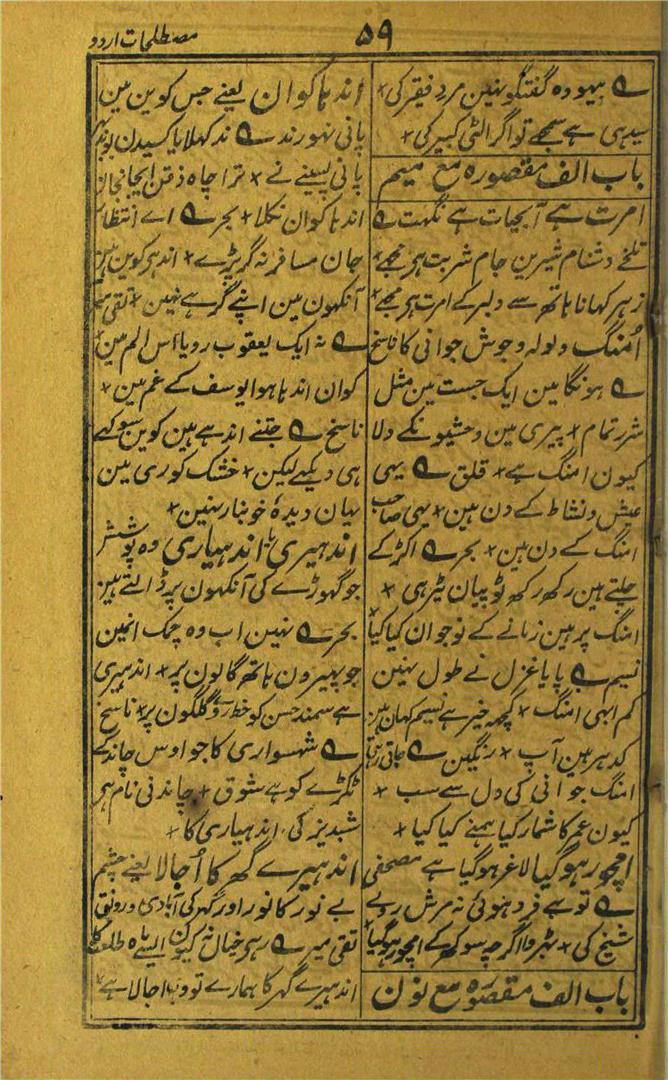 ۵۹
مصطلحات اردو
ے بیہودہ گفتگو نہین مرد فقیر کی ٭
سیدہی ہے سمجھے تو اگر الٹی کبیر کی ٭
باب الف مقصورہ مع میم
امرت ہے آبحیات ہے نگہت ے
تلخے دشنام شیرین جام شربت ہو مجھے ٭
زہر کہانا ہاتھ سے دلبر کے امرت ہو مجھے ٭
اُمنگ ولولہ و جوش جوانی کا ناسخ
ے ہونگا مین ایک جست مین مثل
شرر تمام ٭ پیری مین وحشیو نکے دلا
کیون امنگ ہے ٭ قلق ے یہی
عیش و نشاط کے دن ہین ٭ یہی صاحب
امنگ کے دن ہین ٭ بحر ے اکڑ کے
چلتے ہین رکھ رکھ ٹوپیان ٹیڑہی ٭
امنگ پر ہین زمانے کے نوجوان کیا کیا ٭
نسیم ے پایا غزل نے طول نہین
کم ابہی امنگ ٭ کچھ خیر ہے نسیم کہان ہین
کدہر ہین آپ ٭ رنگین ے جاتی رہتی
امنگ جوانی کی دل سے سب ٭
کیون عمر کا شمار کیا ہمنے کیا کیا ٭
امچور ہو گیا لاغر ہو گیا ہے مصحفی
ے تو بے فرو ہوئی نہ مرش روے
شیخ کی ٭ بٹر وا اگرچہ سوکھ کے امچور ہو گیا ٭
باب الف مقصورہ مع نون
اندہا کوان یعنے جس کوین مین
پانی نہو رند ے ند کہلا باکسیدن بوند بہر
پانی پسینے نے ٭ ترا چاہ ذقن ایجانجان
اندہا کوان نکلا ٭ بحر ے اے انتظار
جان مسافر نہ گر پڑے ٭ اندہر کوین ہین
آنکہون مین اپنے گرہے نہین ٭ تقی میر
ے نہ ایک یعقوب رویا اس الم مین
کوان اندہا ہوا یوسف کے غم مین ٭
ناسخ ے جتنے اندہے ہین کوین سوکہے
ہی دیکہے لیکن ٭ خشک کوری مین
یہان دیدۂ خونبار نہین ٭
اندہیری یا اندہیاری وہ پوشش
جو گہوڑے کی آنکہون پر ڈالتے ہین
بحر ے نہین اب وہ چمک انمین
جو پہیرون ہاتھ گالون پر ٭ اندہیری
ہے سمند حسن کو خط روے گلگون پر ٭ ناسخ
ے شہسواری کا جو اوس چاند کے
ٹکڑے کو ہے شوق ٭ چاندنی نام ہے
شبدیز کی اندہیاری کا ٭
اندہیرے گھر کا اُجالا یعنے چشم
بے نور کا نور اور گہر کی آبادی و رونق
تقی میر ے رہے خیال نہ کیون ایسے ماہ طلعت کا
اندہیرے گہر کا ہمارے تو وہ اجالا ہے ٭